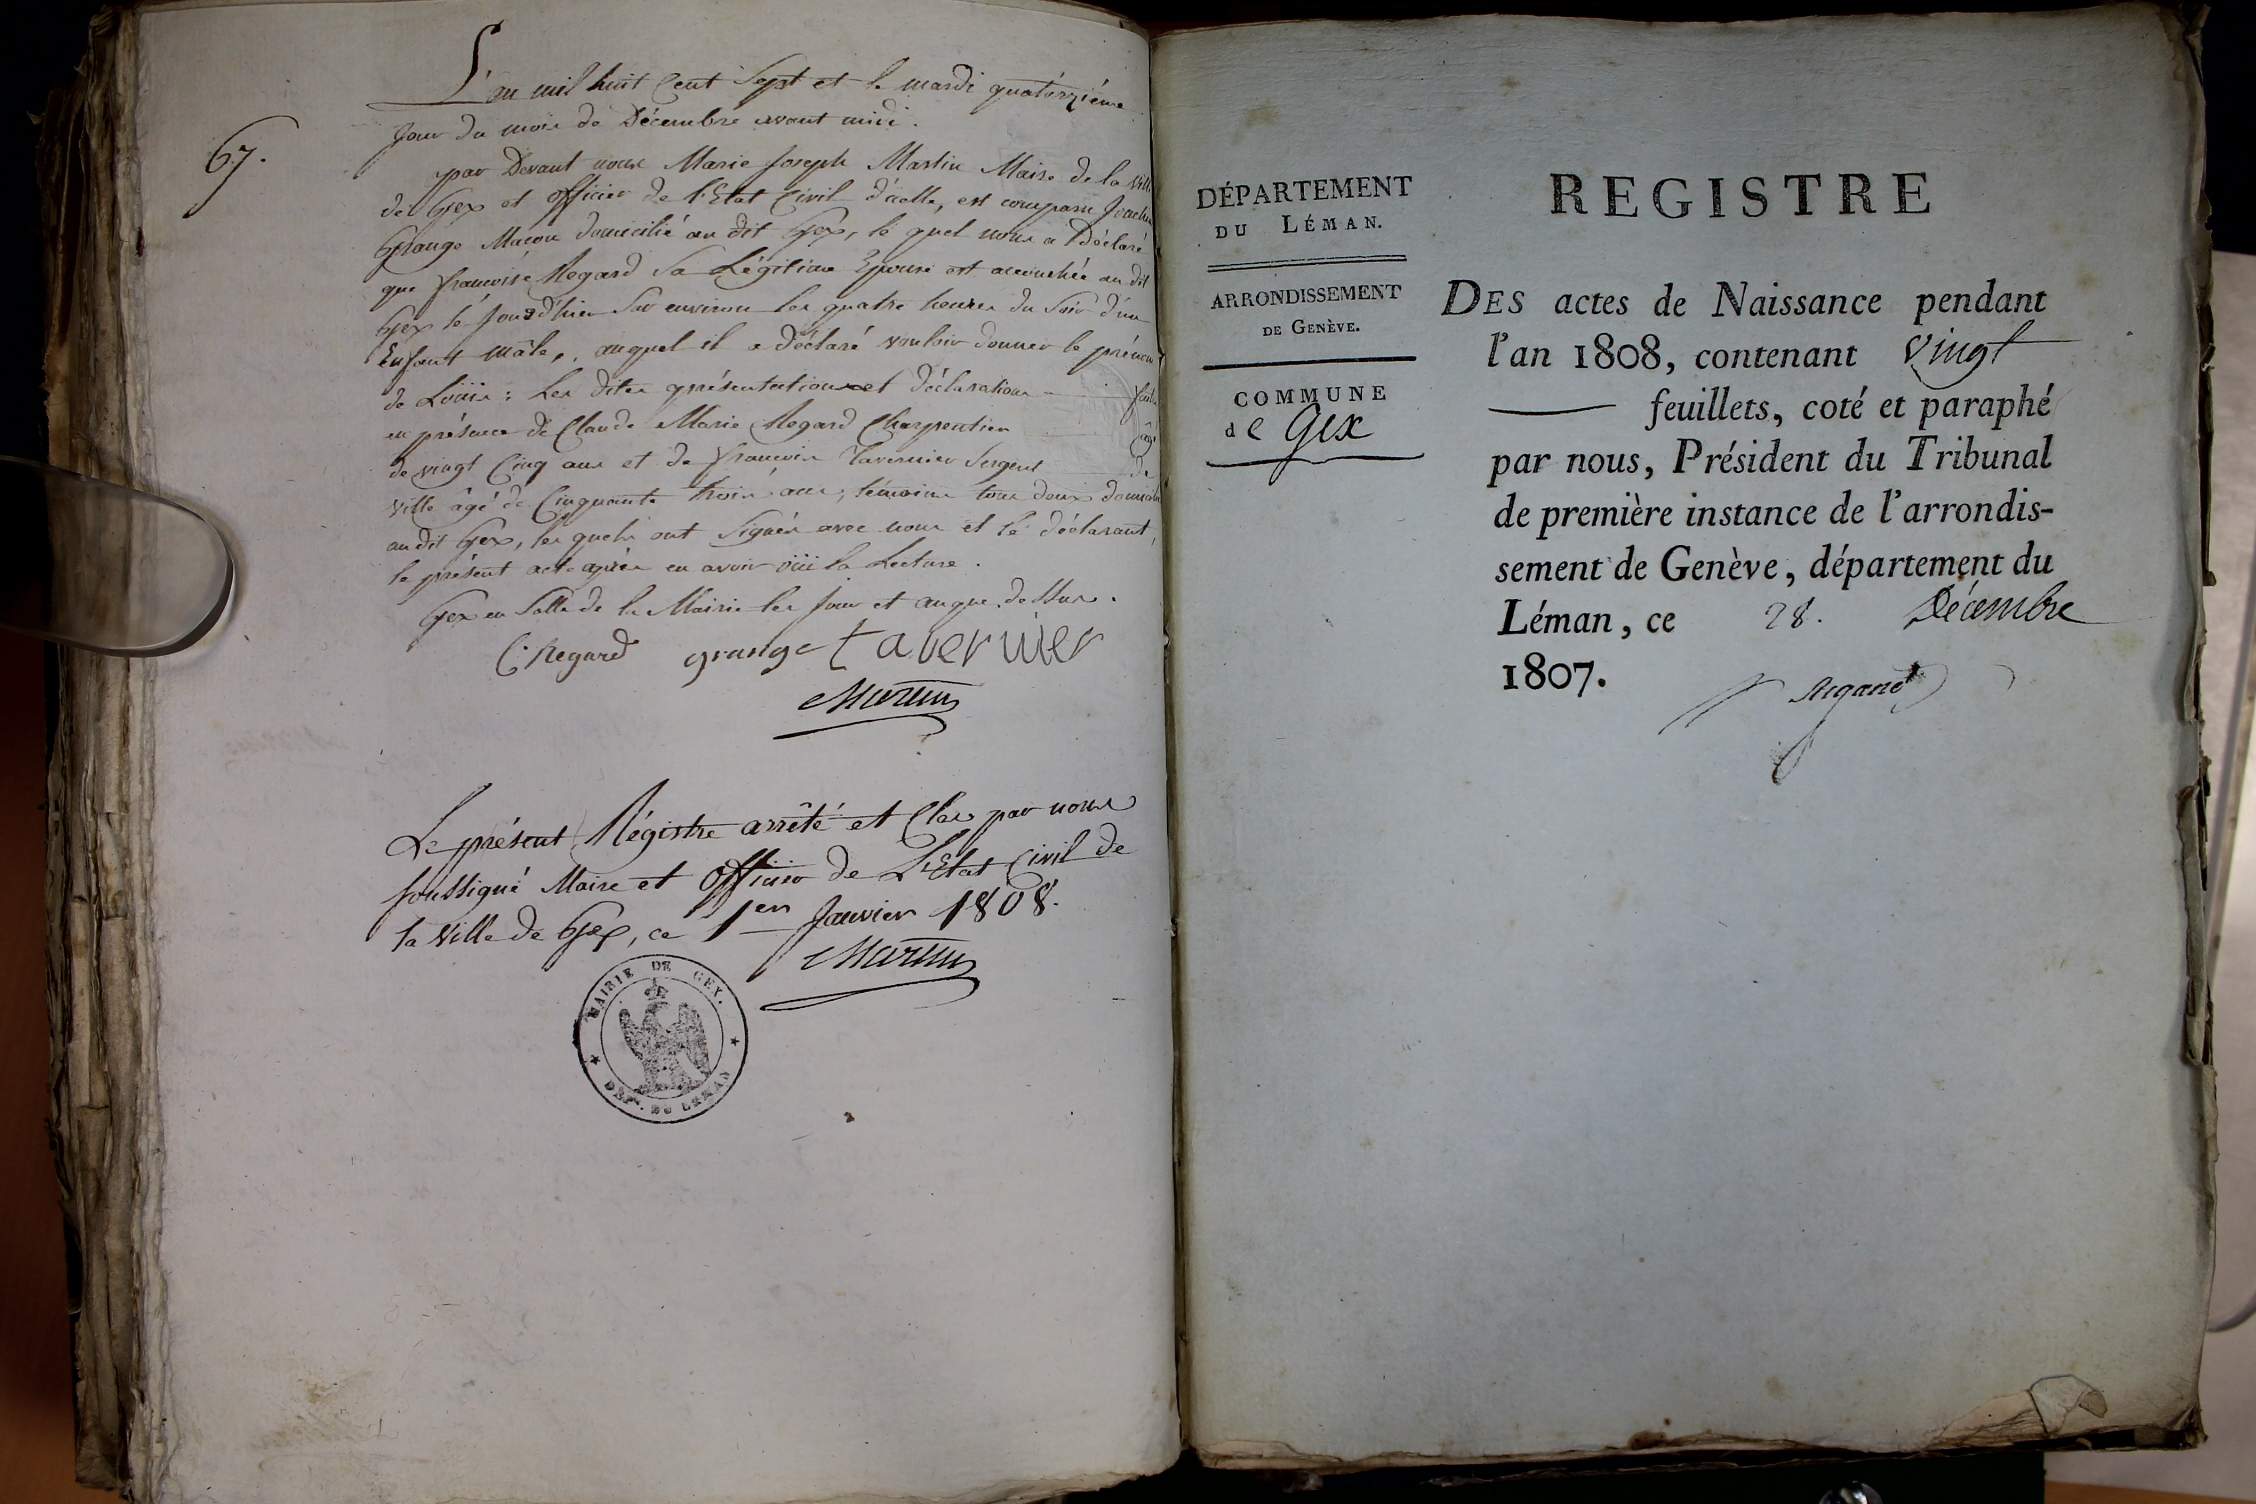 67.
L'an mil huit Cent Sept et le mardi quatorzième
Jour du mois de Décembre avant midi.
par Devant nous Marie Joseph Martin Maire de la Ville
de Gex et officier de l'Etat Civil d'icelle, est comparu
Grange Maçon domicilié au dit Gex, le quel nous a Déclaré
que françoise Regard Sa Légitime Epouse est accouchée au dit
Gex le Jour d'hier Sur environ les quatre heures du Soir d'un
Enfant mâle, auquel il a déclaré vouloir donner le prénom
de Loüis : Les dites présentation et déclaration
en présence de Claude Marie Regard Charpentier
de vingt Cinq ans et de françois Tavernier Sergent de
Ville âgé de Cinquante trois ans, témoins tous deux
au dit Gex, les quels ont Signés avec nous et le déclarant,
le présent acte après en avoir oüi la Lecture.
Gex en Salle de la Mairie les Jour et an que dessus.
C. Regard grange tavernier
Martin
Le présent Régistre arrêté et Clos par nous
soussigné Maire et Officier de L'Etat Civil de
la Ville de Gex, ce 1er Janvier 1808.
Martin
MAIRIE DE GEX.
DEPt. DU LEMAN
DÉPARTEMENT
DU LÉMAN.
ARRONDISSEMENT
DE GENÈVE.
COMMUNE
de Gex
REGISTRE
DES actes de Naissance pendant
l'an 1808, contenant Vingt
feuillets, coté et paraphé
par nous, Président du Tribunal
de première instance de l'arrondis-
sement de Genève, département du
Léman, ce 28. Décembre
1807.